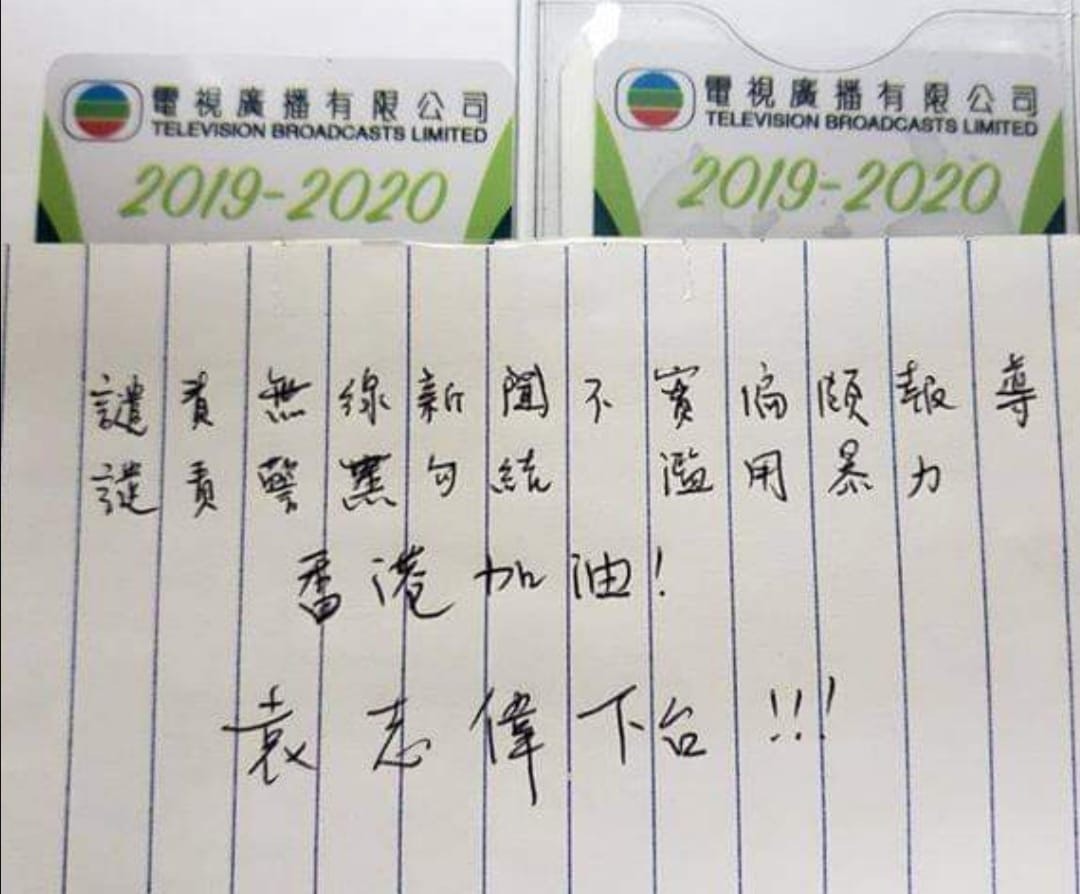 電視廣播有限公司
TELEVISION BROADCASTS LIMITED
2019-2020
電視廣播有限公司
TELEVISION BROADCASTS LIMITED
2019-2020
譴責無線新聞不實偏頗報導
譴責警黨勾結 濫用暴力
香港加油!
袁志偉下台!!!